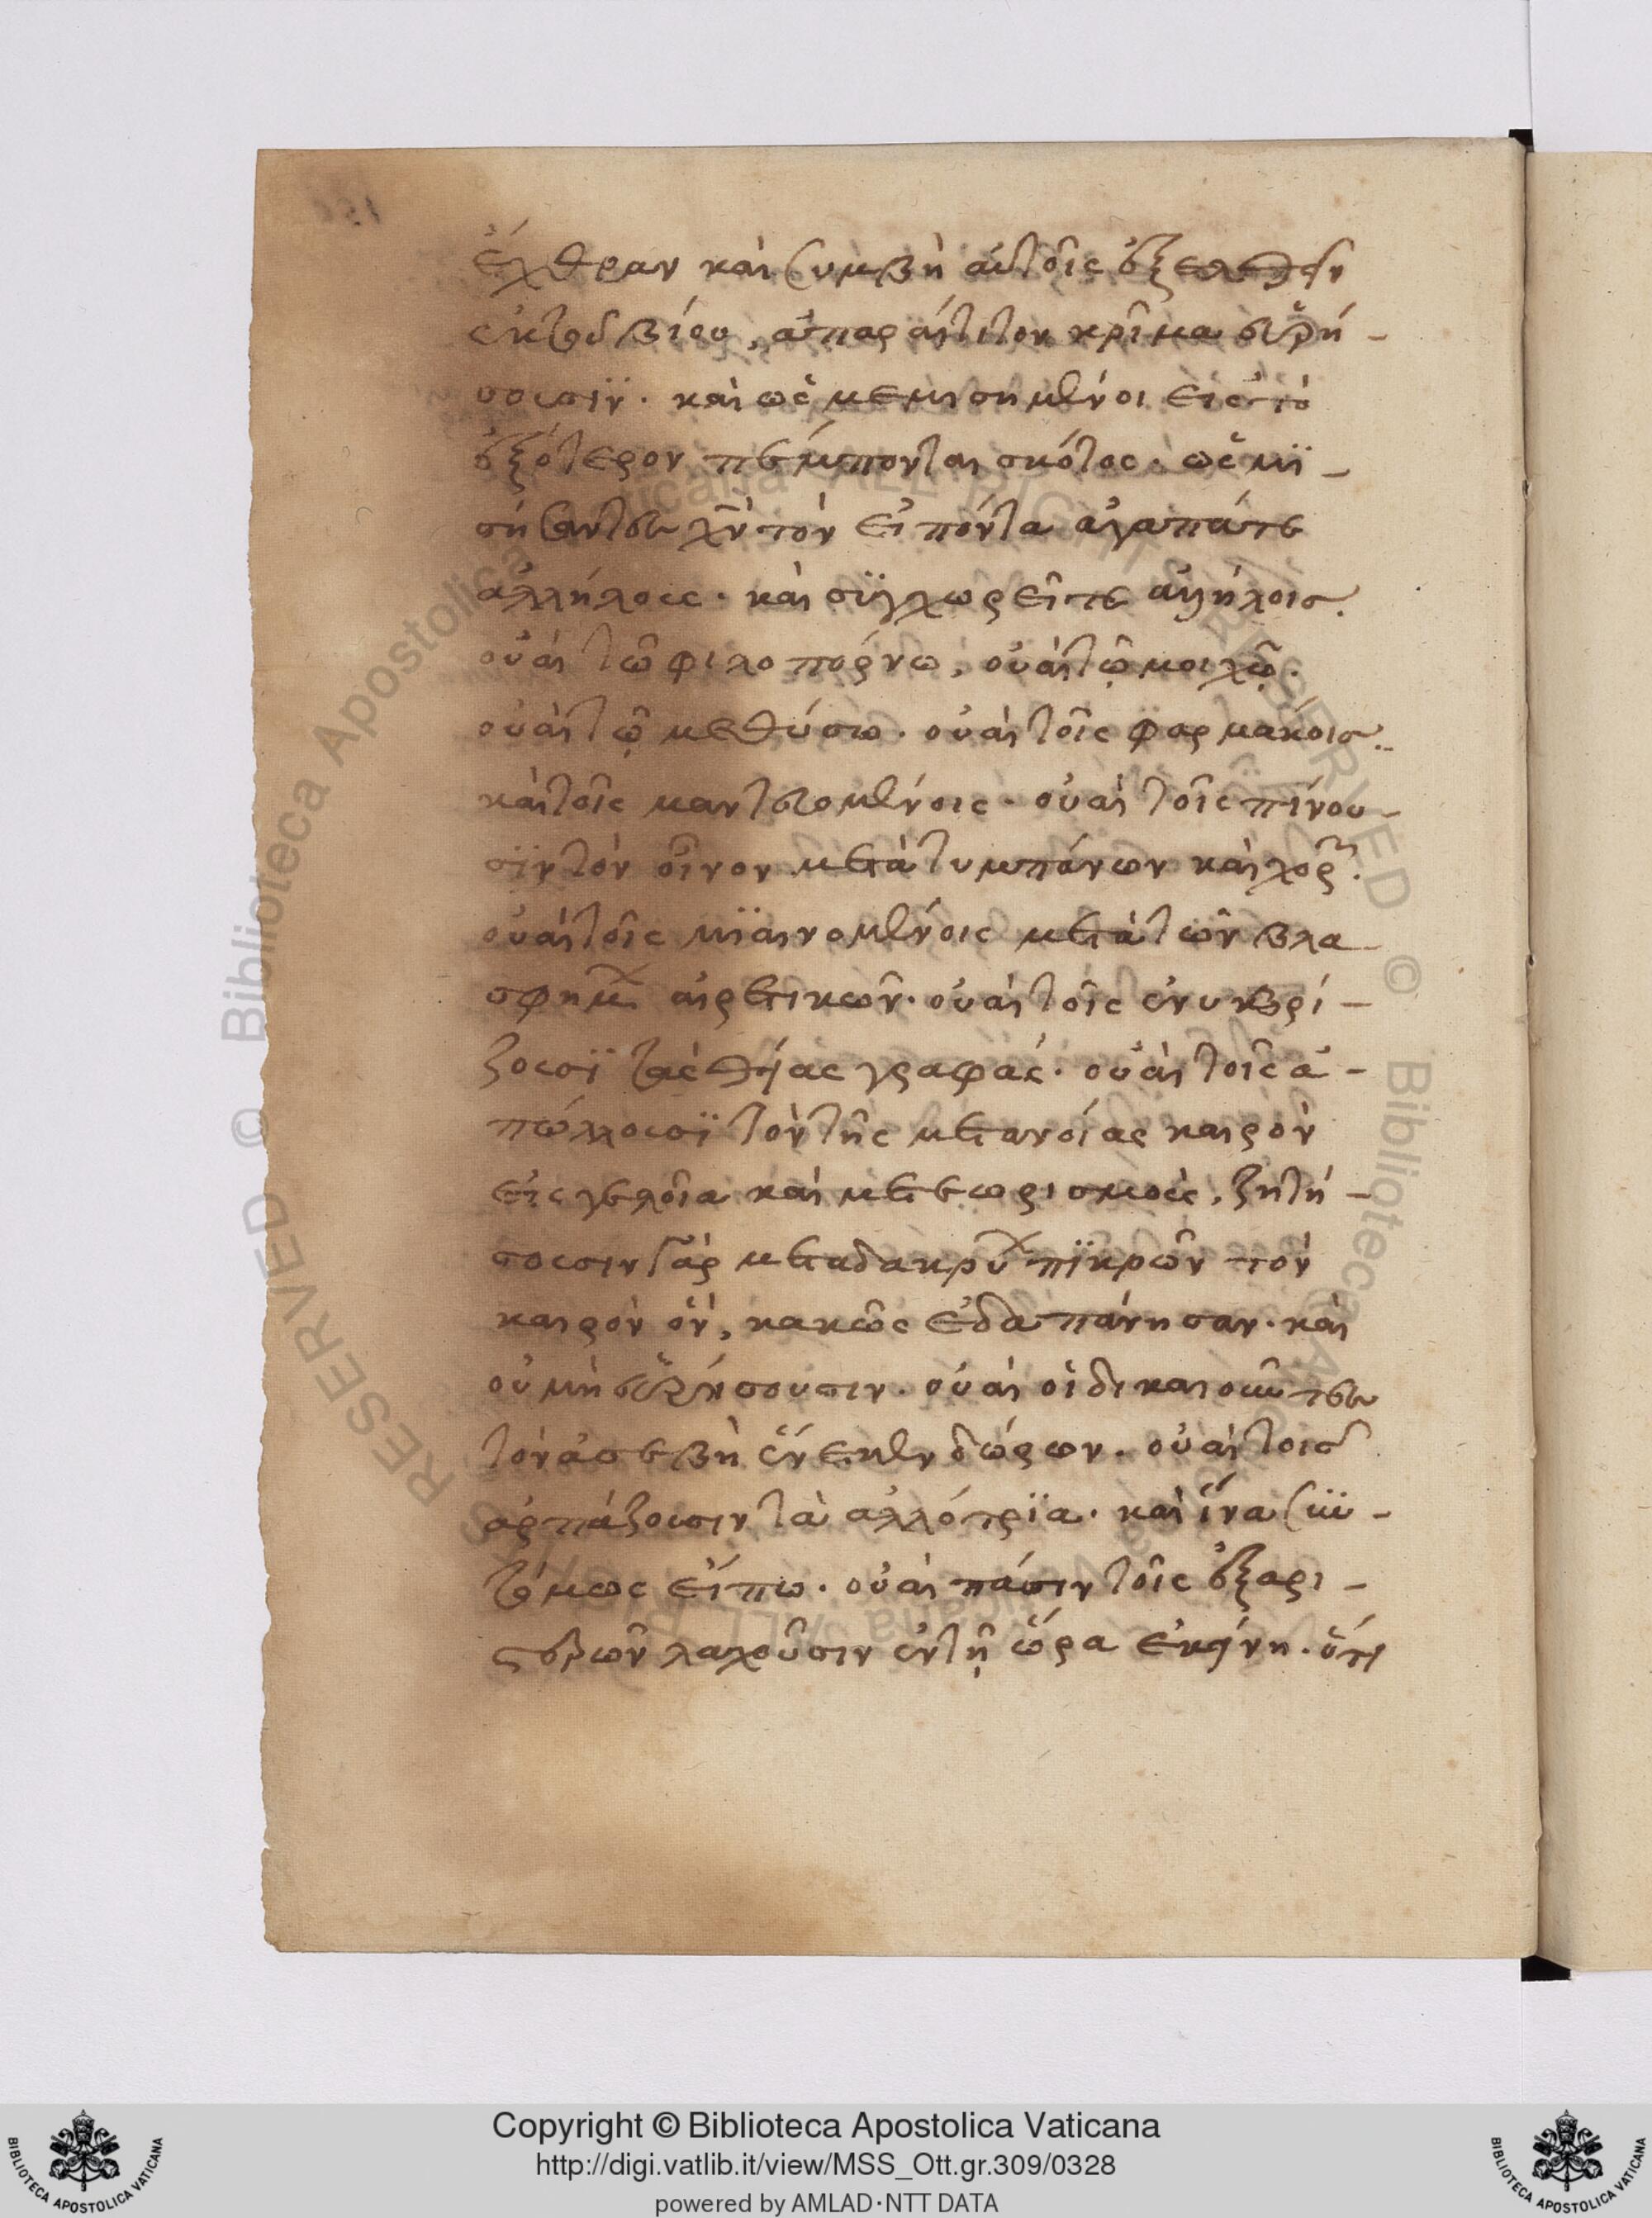 ἔχθραν καὶ συμβῆ αὐτοῖς ἐξελθεῖν
ἐκ τοῦ βίου, ἀπαραίτιτον κρῖμα εὑρή-
σουσιν. καὶ ὡς μεμισημένοι εἰς τὸ
ἐξότερον πέμπονται σκότος. ὡς μϊ-
σήσαντες χν τὸν εἰπόντα ἀγαπάτε
ἀλλήλους. καὶ σϋγχωρεῖτε ἀλλήλοις.
οὐαὶ τῶ φιλοπόρνω, οὐαὶ τῷ μοιχῷ.
οὐαὶ τῷ μεθύσω. οὐαὶ τοῖς φαρμακοῖς.
καὶ τοῖς μαντευομένοις. οὐαὶ τοῖς πίνου-
σϊν τὸν οἶνον μετὰ τυμπάνων καὶ χορῶν.
οὐαὶ τοῖς μϊαινομένοις μετὰ τῶν βλα-
σφημων αἱρετικῶν. οὐαὶ τοῖς ἐνυβρί-
ζουσϊ τὰς θείας γραφάς. οὐαὶ τοῖς ἀ-
πώλλουσϊ τὸν τῆς μετανοίας καιρὸν
εἰς γελοῖα καὶ μετεωρισμοὺς, ζητή-
σουσιν γὰρ μεταδακρύων πϊκρῶν τὸν
καιρὸν ὃν, κακῶς ἐδαπάνησαν. καὶ
οὐ μὴ εὑρήσουσιν. οὐαὶ οἱ δικαιοῦντες
τὸν ἀσεβῆ ἕνεκεν δώρων. οὐαὶ τοις
ἁρπάζουσιν τὰ ἀλλότρϊα. καὶ ἵνα συν-
τόμως εἴπω. οὐαὶ πάσιν τοῖς ἐξ ἀρι-
στερῶν λαχοῦσιν ἐν τῇ ὥρα ἐκείνη. ὅτι
Copyright © Biblioteca Apostolica Vaticana
http://digi.vatlib.it/view/MSS_Ott.gr.309/0328
powered by AMLAD·NTT DATA